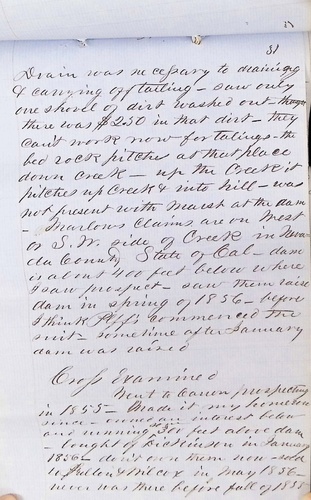 31
Drain was necessary to draining
& carrying off tailing - saw only
one shovel of dirt washed out - thought
there was $250 in that dirt - they
can't work now for talings - the
bed rock pitches at that place
down creek - up the Creek it
pitches up Creek & into hill - was
not present with Marst at the dam
- Marlows Claims are on West
or S.W. side of Creek in Neva
da County State of Cal - dam
is about 400 feet below where
I saw prospect - saw them raise
dam in spring of 1856 - before
I think Plffs commenced the
suit - sometime after January
dam was raised
Cross Examined
Went to Canon prospecting
in 1855 - Made it my home
since - own an interest below
and running 300 feet above dam
- bought of Dickinson in January
1856 - don't own them now - sold
to & Wilcox in May 1856 -
never was there before fall of 1855